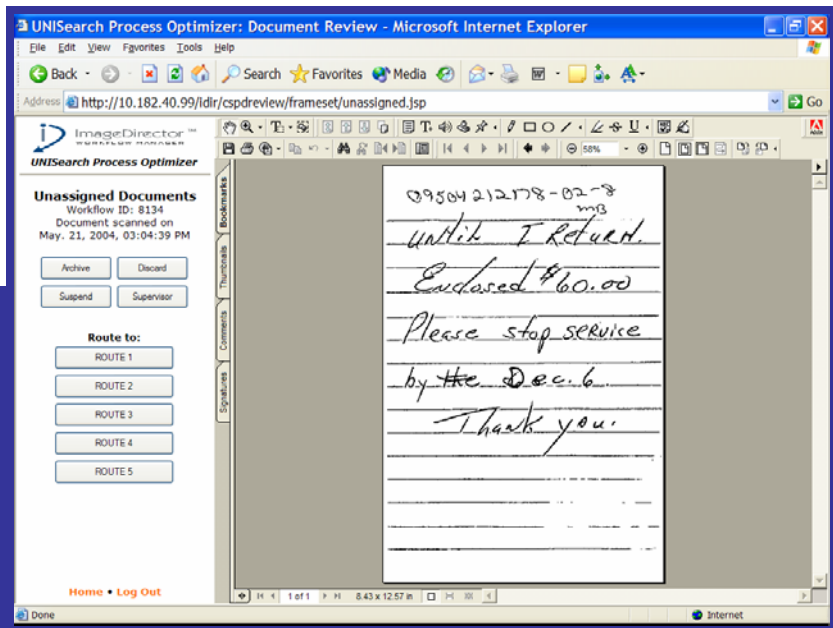 UNISearch Process Optimizer: Document Review - Microsoft Internet Explorer
File Edit View Favorites Tools Help
Back Search Favorites Media
Address http://10.182.40.99/idir/cspdreview/frameset/unassigned.jsp Go
ImageDirector ™
WORKFLOW MANAGER
UNISearch Process Optimizer
Unassigned Documents
Workflow ID: 8134
Document scanned on
May. 21, 2004, 03:04:39 PM
Archive Discard
Suspend Supervisor
Route to:
ROUTE 1
ROUTE 2
ROUTE 3
ROUTE 4
ROUTE 5
Home • Log Out
58%
Bookmarks
Thumbnails
Comments
Signatures
09504212178-02-8
mB
until I Return.
Enclosed $60.00
Please stop service
by the Dec. 6.
Thank you.
1 of 1 8.43 x 12.57 in
Done Internet